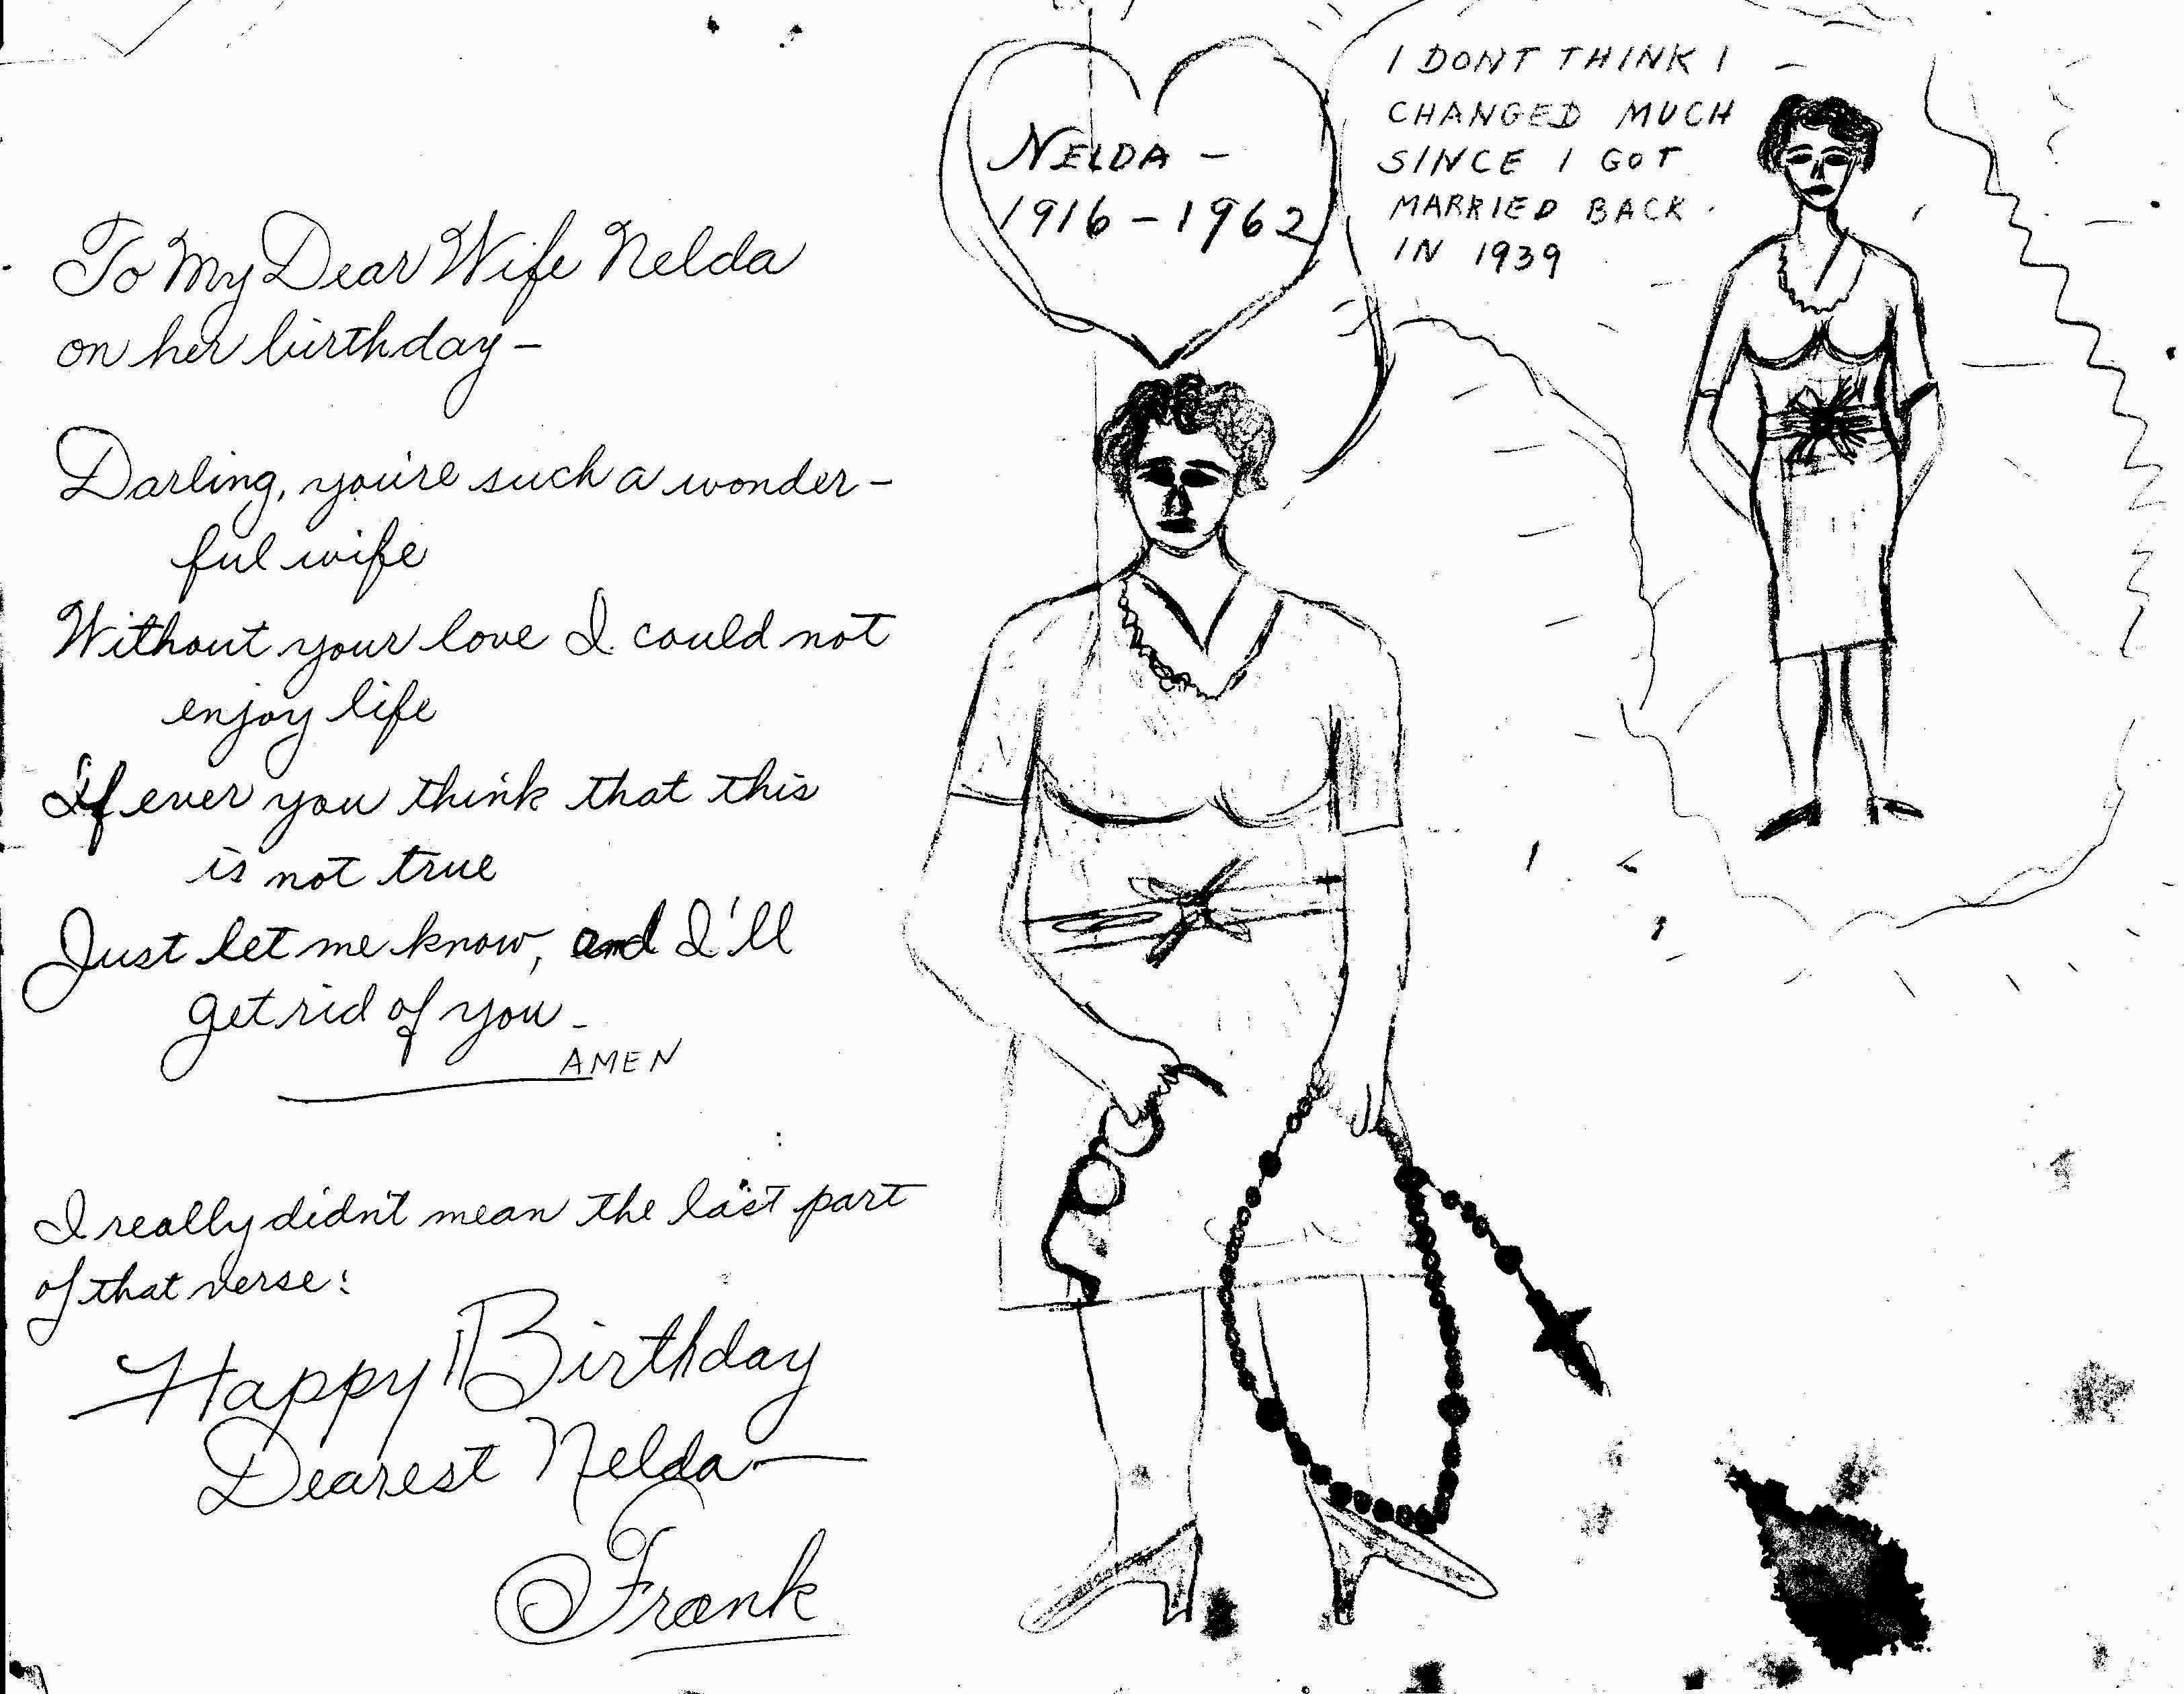 To My Dear Wife Nelda
on her birthday –
Darling, you're such a wonder –
ful wife
Without your love I could not
enjoy life
If ever you think that this
is not true
Just let me know, and I'll
get rid of you –
AMEN
I really didn't mean the last part
of that verse:
Happy Birthday
Dearest Nelda —
Frank
NELDA –
1916 – 1962
I DONT THINK I
CHANGED MUCH
SINCE I GOT
MARRIED BACK
IN 1939